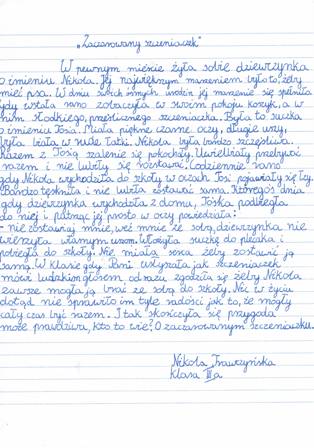 „Zaczarowany szczeniaczek"
W pewnym mieście żyła sobie dziewczynka
o imieniu Nikola. Jej największym marzeniem było to, żeby
mieć psa. W dniu swoich ósmych urodzin jej marzenie się spełniło
gdy wstała rano zobaczyła w swoim pokoju koszyk, a w
nim słodkiego, prześlicznego szczeniaczka. Była to suczka
o imieniu Tosia. Miała piękne czarne oczy, długie uszy,
była biała w łatki. Nikola była bardzo szczęśliwa.
Razem z Tosią szalenie się pokochały. Uwielbiały przebywać
razem i nie lubiły się rozstawać. Codziennie rano
gdy Nikola wychodziła do szkoły w oczach Tosi pojawiały się łzy.
Bardzo tęskniła i nie lubiła zostawać sama. Któregoś dnia
gdy dziewczynka wychodziła z domu, Tosia podbiegła
do niej i patrząc jej prosto w oczy powiedziała:
- nie zostawiaj mnie, weź mnie ze sobą, dziewczynka nie
wierzyła własnym uszom. Włożyła suczkę do plecaka i
pobiegła do szkoły. Nie miała serca żeby zostawić ją
samą. W klasie gdy Pani usłyszała jak szczeniaczek
mówi ludzkim głosem od razu zgodziła się żeby Nikola
zawsze mogła ją brać ze sobą do szkoły. Nic w życiu
dotąd nie sprawiło im tyle radości jak to, że mogły
cały czas być razem. I tak skończyła się przygoda
może prawdziwa, kto to wie? O zaczarowanym szczeniaczku.
Nikola Trawczyńska
klasa III a